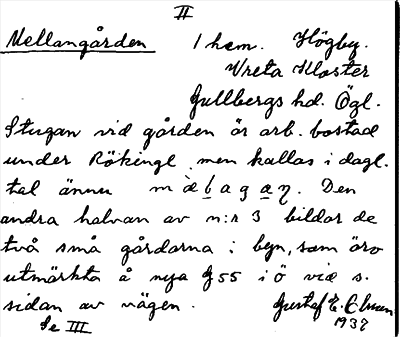 II
Mellangården 1 hem. Högby.
Vreta Kloster
Gullbergs hd. Ögl.
Stugan vid gården är arb. bostad
under Rökingl men kallas i dagl.
tal ännu Den
andra halvan av n:r 3 bildar de
två små gårdarna i byn, som äro
utmärkta å nya G 55 i ö vid s.
sidan av vägen. Gustaf E.
Se III 1937